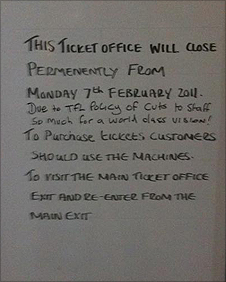 THIS TICKET OFFICE WILL CLOSE
PERMENENTLY FROM
MONDAY 7th FEBRUARY 2011.
Due to TFL Policy of Cuts to Staff
So much for a world class vision!
To PURCHASE tickets CUSTOMERS
SHOULD USE THE MACHINES.
TO VISIT THE MAIN TICKET OFFICE
EXIT AND RE-ENTER FROM THE
MAIN EXIT